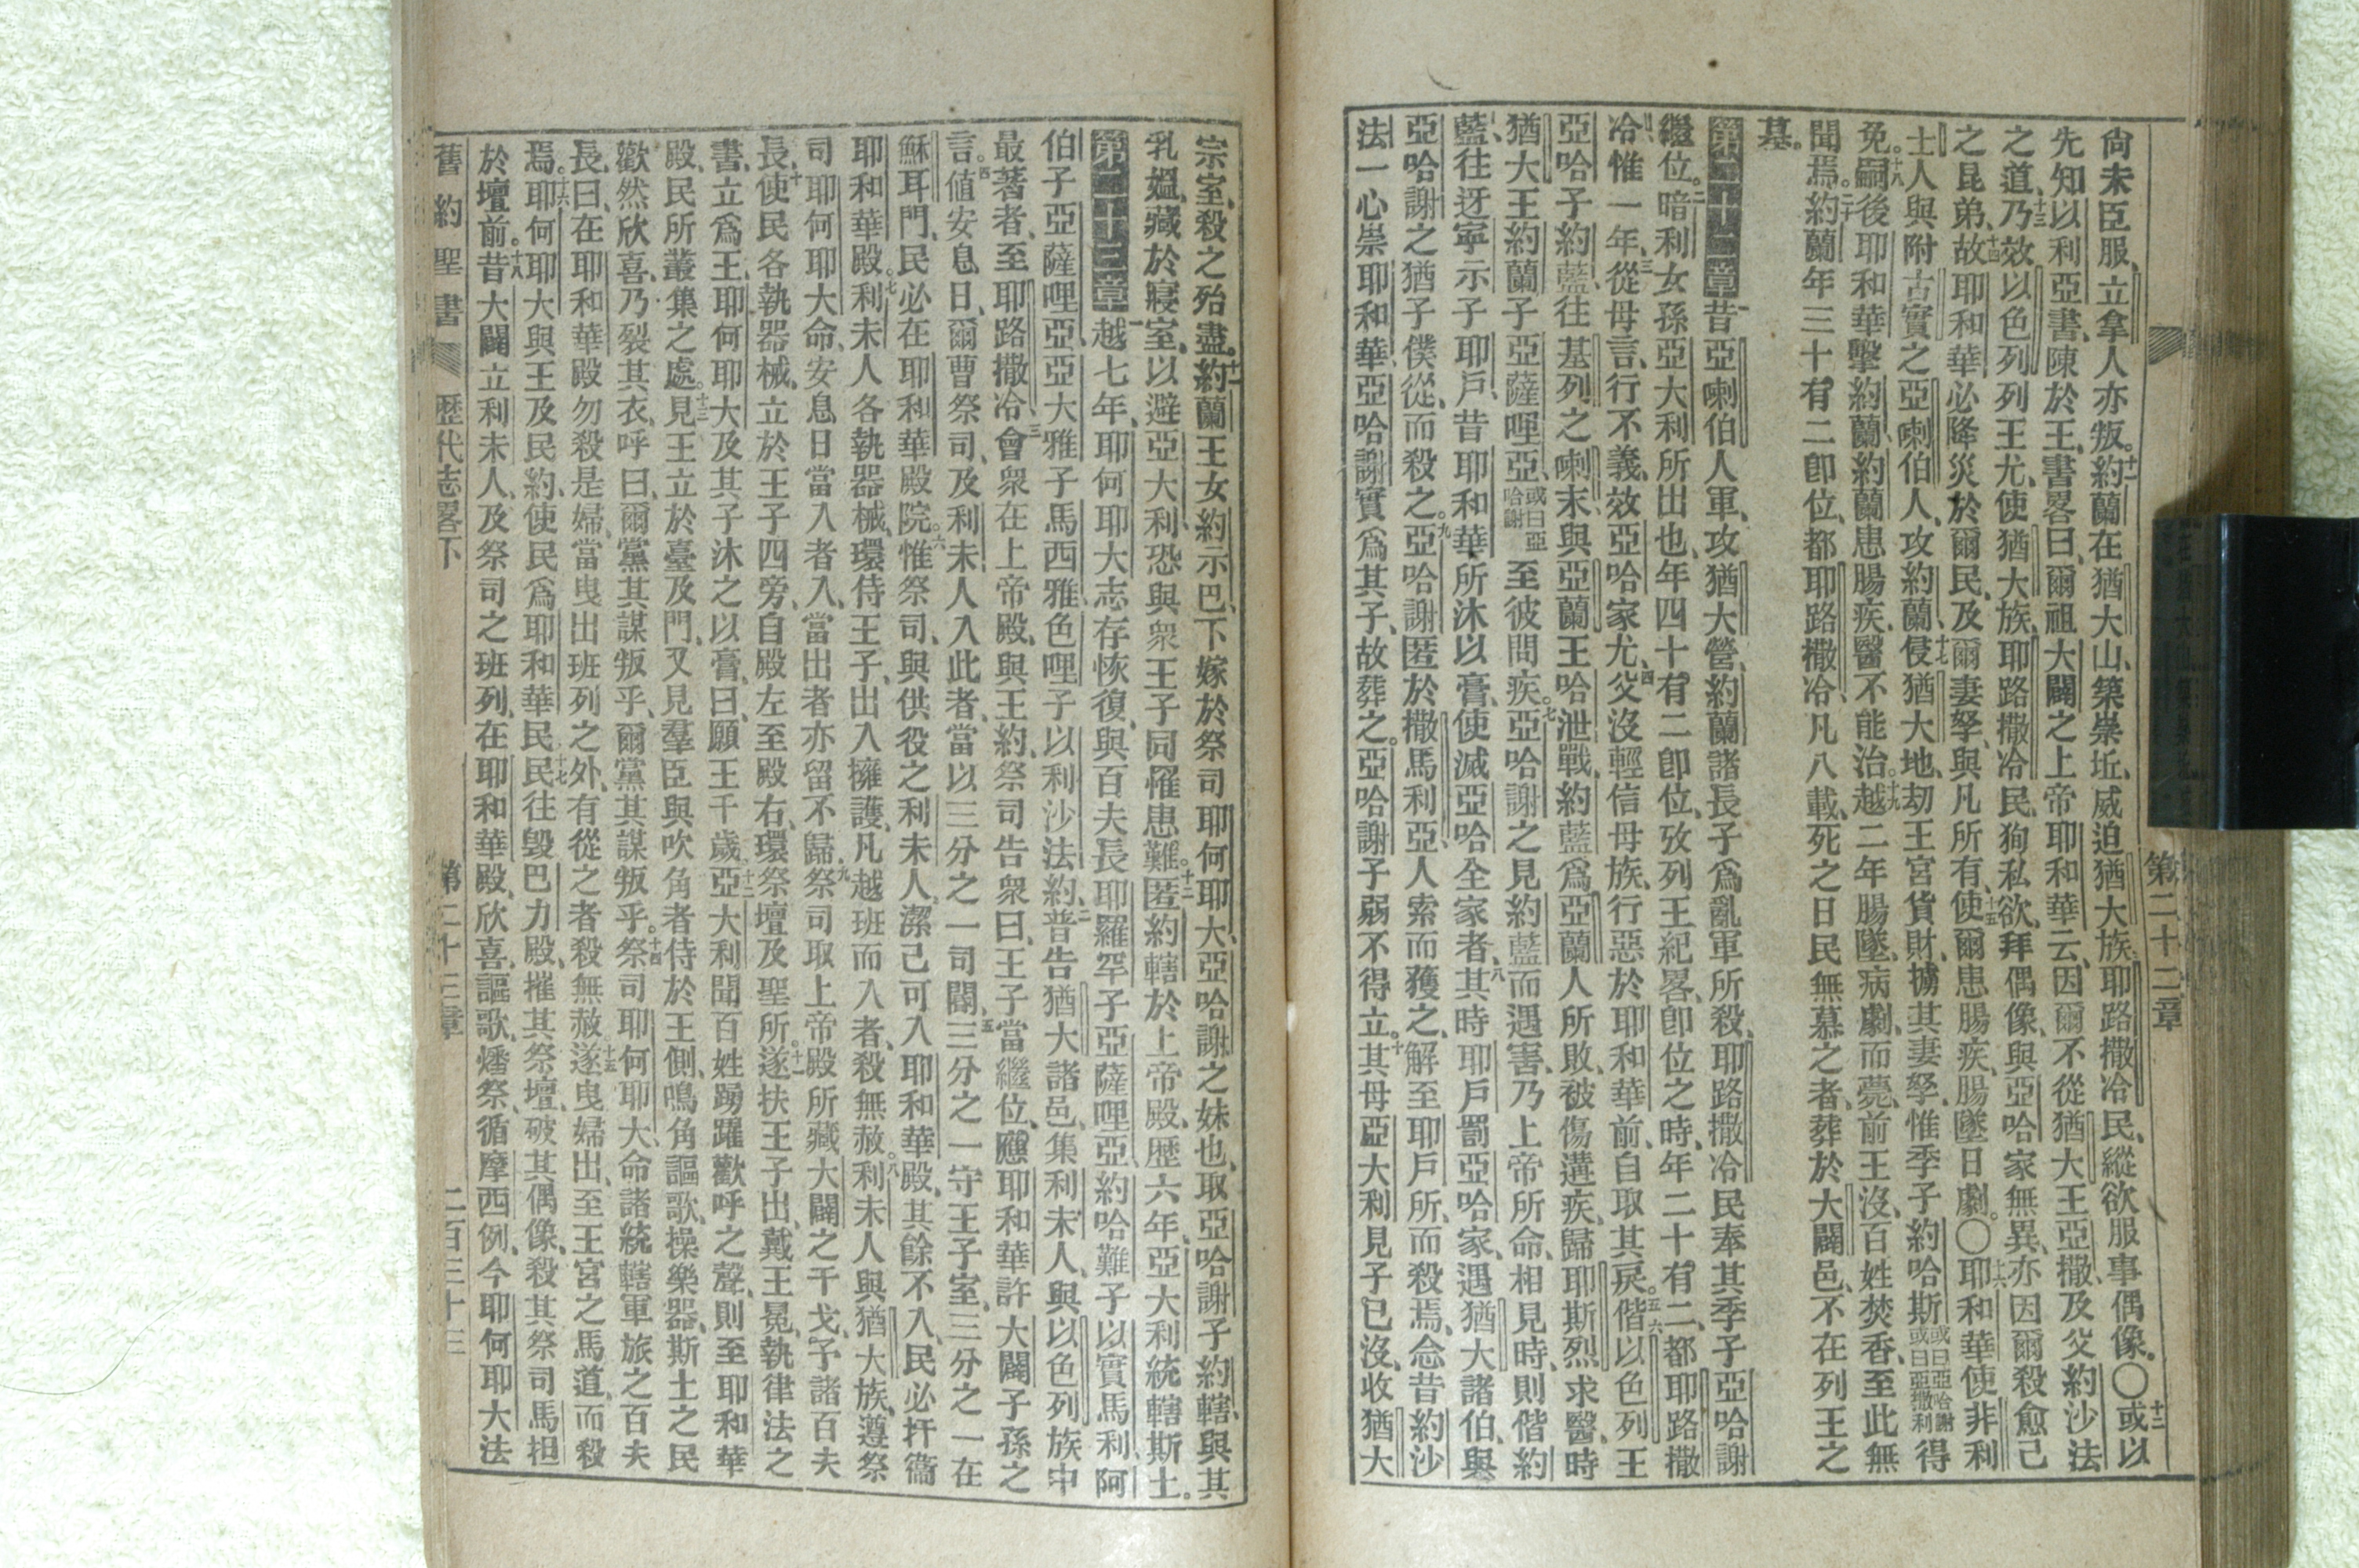 第二十二章
尙未臣服、立拿人亦叛。十一約蘭在猶大山、築崇坵、威迫猶大族、耶路撒冷民、縱欲服事偶像。〇十二或以
先知以利亞書、陳於王、書畧曰、爾祖大闢之上帝耶和華云、因爾不從猶大王亞撒、及父約沙法
之道、十三乃效以色列列王尤、使猶大族、耶路撒冷民、狥私欲、拜偶像、與亞哈家無異、亦因爾殺愈己
之昆弟、十四故耶和華必降災於爾民、及爾妻孥、與凡所有、十五使爾患腸疾、腸墜日劇。〇十六耶和華使非利
士人與附古實之亞喇伯人、攻約蘭、十七侵猶大地、劫王宮貨財、擄其妻孥、惟季子約哈斯或曰亞哈謝或曰亞撒利得
免。十八嗣後耶和華擊約蘭、約蘭患腸疾、醫不能治。十九越二年腸墜、病劇、而薨、前王沒、百姓焚香、至此無
聞焉。二十約蘭年三十有二卽位、都耶路撒冷、凡八載、死之日民無慕之者、葬於大闢邑、不在列王之
墓。
第二十二章一昔亞喇伯人軍、攻猶大營、約蘭諸長子爲亂軍所殺、耶路撒冷民奉其季子亞哈謝
繼位。二暗利女孫亞大利所出也、年四十有二卽位、攷列王紀畧、卽位之時、年二十有二、都耶路撒
冷惟一年、三從母言、行不義、效亞哈家尤、四父沒輕信母族、行惡於耶和華前、自取其戾。五六偕以色列王
亞哈子約藍、往基列之喇末、與亞蘭王哈泄戰、約藍爲亞蘭人所敗、被傷遘疾、歸耶斯烈求醫、時
猶大王約蘭子亞薩哩亞、或曰亞哈謝至彼問疾。七亞哈謝之見約藍而遇害、乃上帝所命、相見時、則偕約
藍、往迓寧示子耶戶、昔耶和華所沐以膏、使滅亞哈全家者、八其時耶戶罰亞哈家、遇猶大諸伯、與
亞哈謝之猶子僕從、而殺之。九亞哈謝匿於撒馬利亞、人索而獲之、解至耶戶所、而殺焉、念昔約沙
法一心崇耶和華、亞哈謝實爲其子、故葬之。亞哈謝子弱不得立。十其母亞大利見子已沒、收猶大
宗室、殺之殆盡。十一約蘭王女約示巴、下嫁於祭司耶何耶大、亞哈謝之妹也、取亞哈謝子約轄、與其
乳媼、藏於寢室、以避亞大利、恐與衆王子同罹患難。十二匿約轄於上帝殿、歷六年、亞大利統轄斯土。
第二十三章一越七年、耶何耶大志存恢復、與百夫長耶羅罕子亞薩哩亞、約哈難子以實馬利、阿
伯子亞薩哩亞、亞大雅子馬西雅、色哩子以利沙法約、二普告猶大諸邑、集利未人、與以色列族中
最著者、至耶路撒冷、三會衆在上帝殿、與王約、祭司告衆曰、王子當繼位、應耶和華許大闢子孫之
言。四値安息日、爾曹祭司、及利未人入此者、當以三分之一司閽、五三分之一守王子室、三分之一在
穌耳門、民必在耶和華殿院。六惟祭司、與供役之利未人、潔己可入耶和華殿、其餘不入、民必扞衞
耶和華殿。七利未人各執器械、環侍王子、出入擁護、凡越班而入者、殺無赦。八利未人與猶大族、遵祭
司耶何耶大命、安息日當入者入、當出者亦留不歸、九祭司取上帝殿所藏大闢之干戈、予諸百夫
長、十使民各執器械、立於王子四旁、自殿左至殿右、環祭壇及聖所。十一遂扶王子出、戴王冕、執律法之
書、立爲王、耶何耶大及其子沐之以膏、曰、願王千歲。十二亞大利聞百姓踴躍歡呼之聲、則至耶和華
殿、民所叢集之處。十三見王立於臺及門、又見羣臣與吹角者侍於王側、鳴角謳歌、操樂器、斯土之民
歡然欣喜、乃裂其衣、呼曰、爾黨其謀叛乎、爾黨其謀叛乎。十四祭司耶何耶大、命諸統轄軍旅之百夫
長、曰、在耶和華殿勿殺是婦、當曳出班列之外、有從之者殺無赦。十五遂曳婦出、至王宮之馬道、而殺
焉。十六耶何耶大與王及民約、使民爲耶和華民。十七民往毀巴力殿、摧其祭壇、破其偶像、殺其祭司馬担
於壇前。十八昔大闢立利未人、及祭司之班列、在耶和華殿、欣喜謳歌、燔祭、循摩西例、今耶何耶大法
舊約聖書 歷代志畧下 第二十三章 二百三十三